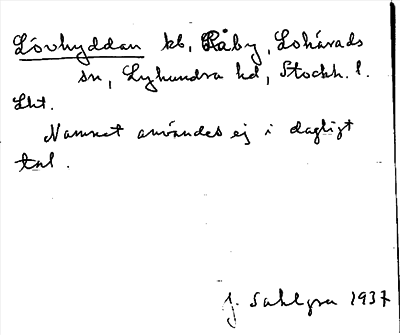 Lövhyddan kb, Råby, Lohärads
sn, Lyhundra hd, Stockh. l.
Lht.
Namnet användes ej i dagligt
tal.
J. Sahlgren 1937